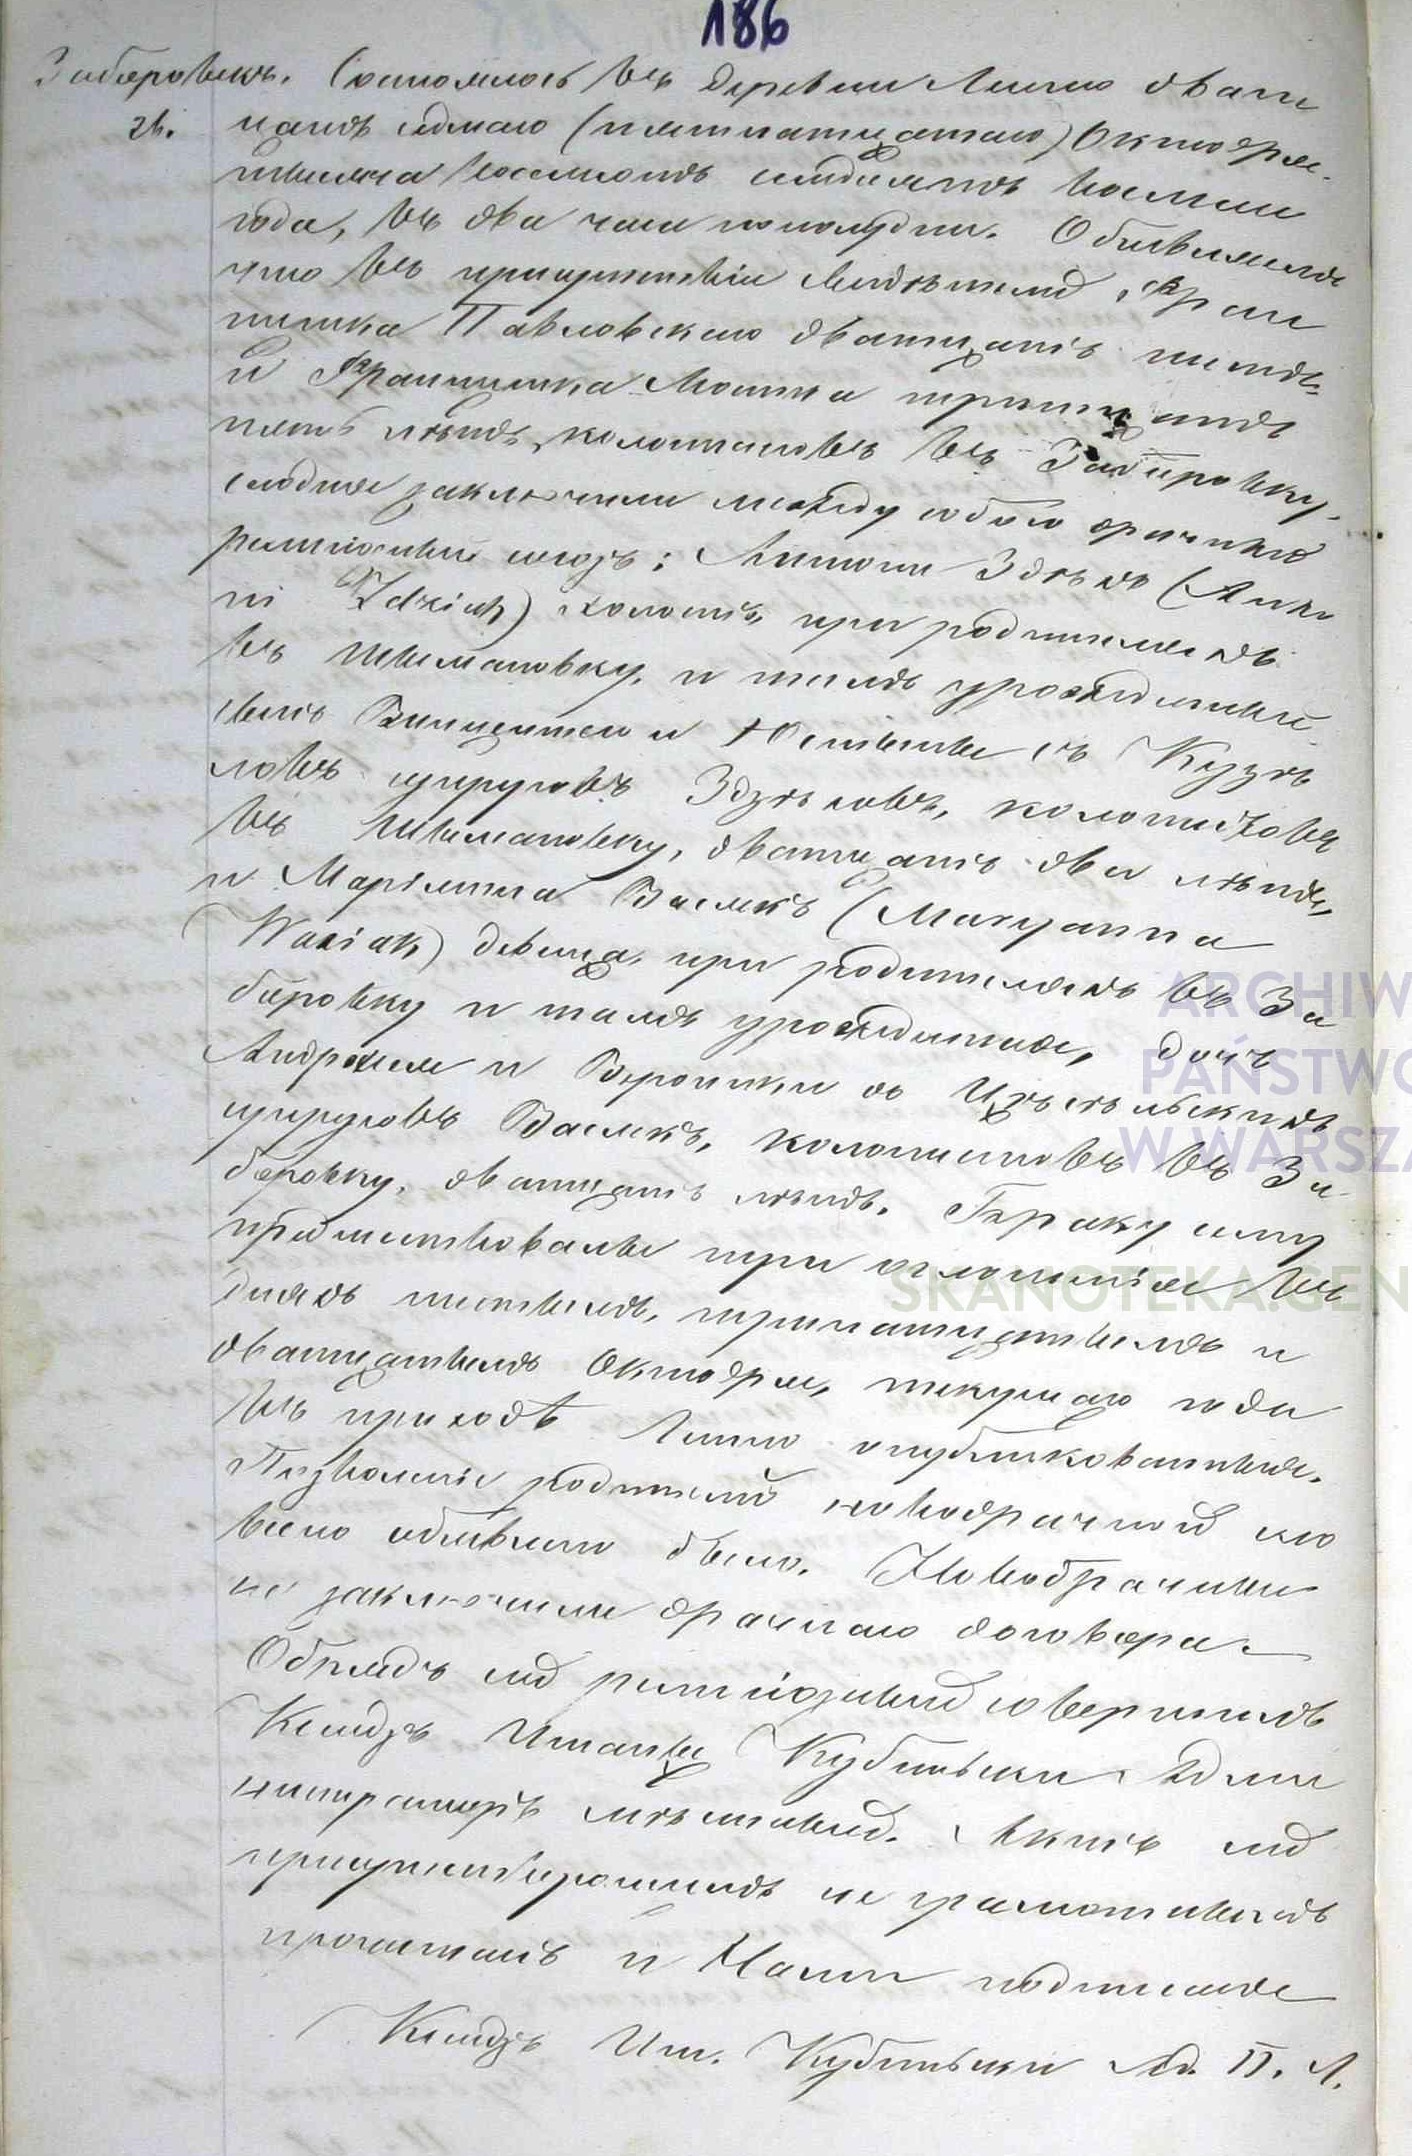 186
Заборовекъ. Состоялось въ деревни Лешно двати
26. цать седмаго (пятнатцатаго) Октября
тысяча восемьсотъ семдесятъ восьми
года, въ два часа пополудни. Объявляемъ
что въ присутствіи свидѣтелей, Фран
цишка Павловскаго дватцать шесть
и Францишка тритцать
пять лѣтъ, колонистовъ въ Заборовку,
сегодня заключили между собою брачный
религіозный союзъ: Антони Здзѣхъ (Анто
ni Zdziech) холостъ, при родителяхъ
въ Шимановку, и тамъ урожденный
сынъ Винцентего и Юстины съ Кузѣ
ловъ супруговъ Здзѣховъ, колонистовъ
въ Шимановку, дватцать два лѣтъ,
и Маріянна Васякъ (Maryanna
Wasiak) девица, при родителяхъ въ За
боровку и тамъ урожденная, дочь
Андрея и Вероники съ
супруговъ Васякъ, колонистовъ въ За
боровку, дватцать лѣтъ. Браку сему
предшествовали три оглашенія въ
дняхъ шестымъ, тринатцатымъ и
дватцатымъ Октября, текущаго года
въ приходѣ Лешно опубликованныя.
Позволеніе родителей новобрачной сло
весно объявлено было. Новобрачныи
не заключили брачнаго договора.
Обрядъ сей религіозный совершилъ
Ксендзъ Игнацы Кубиньски Адми
нистраторъ мѣстный. Актъ сей
присутствующимъ неграмотнымъ
прочитанъ и Нами подписанъ
Ксендзъ Иг. Кубиньски Ад. П. Л.
ARCHIW
PAŃSTWO
W WARSZA
SKANOTEKA.GEN